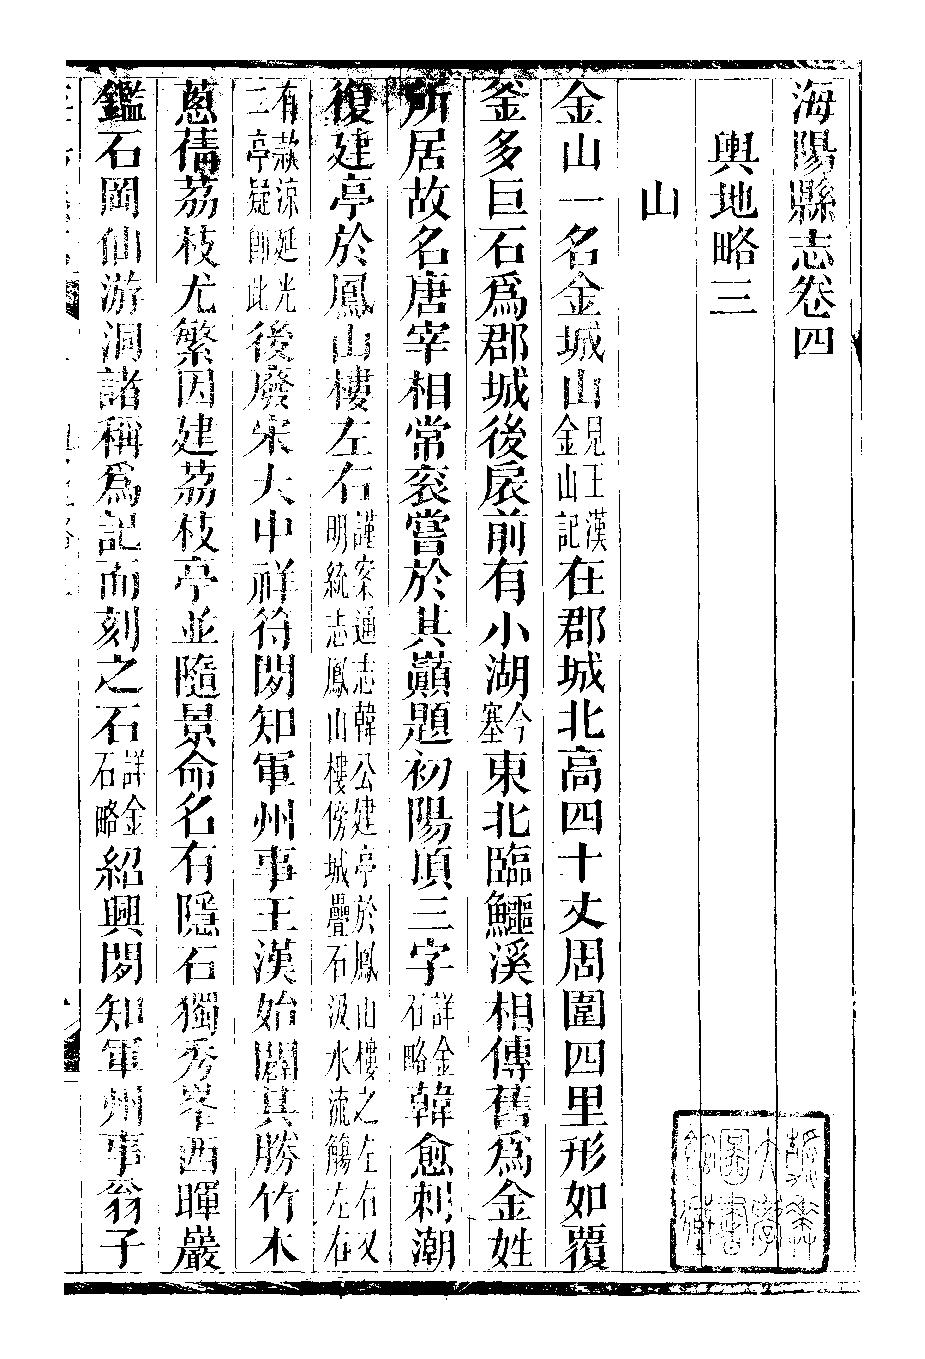 海陽縣志卷四
輿地略三
山
金山一名金城山見王漢金山記在郡城北高四十丈周圍四里形如覆
釜多巨石爲郡城後扆前有小湖今塞東北臨鱷溪相傳舊爲金姓
所居故名唐宰相常袞嘗於其巓題初陽頂三字詳金石略韓愈刺潮
復建亭於鳳山樓左右謹案通志韓公建亭於鳳山樓之左右又明統志鳳山樓傍城疊石汲水流觴左右
有款涼延光二亭疑卽此後廢宋大中祥符閒知軍州事王漢始闢其勝竹木
蔥蒨荔枝尤繁因建荔枝亭並隨景命名有隱石獨秀峯西暉巖
鑑石岡仙游洞諸稱爲記而刻之石詳金石略紹興閒知軍州事翁子